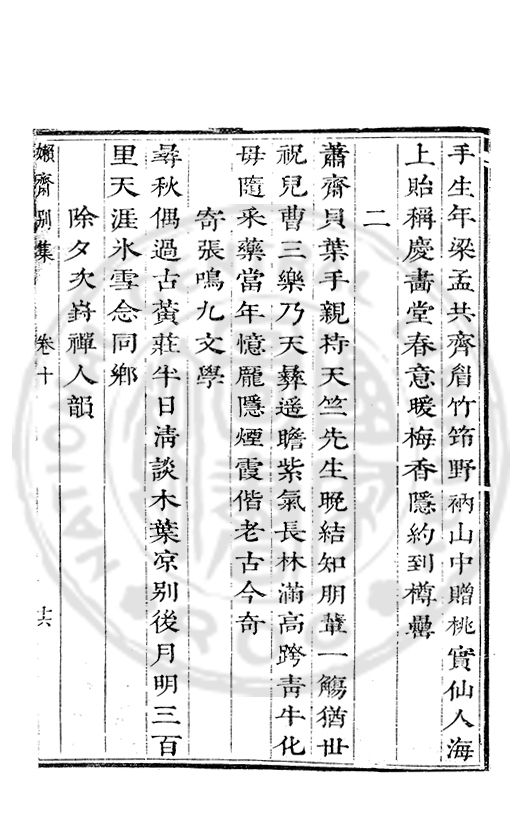 手生年梁孟共齊眉竹筇野衲山中贈桃實仙人海
上貽稱慶畵堂春意暖梅香隱約到樽罍
二
蕭齋貝葉手親持天竺先生晚結知朋輩一觴猶丗
祝兒曹三樂乃天彝遥瞻紫氣長林滿高跨靑牛化
毋隨采藥當年憶龎隱煙霞偕老古今奇
寄張鳴九文學
尋秋偶過古黃莊半日淸談木葉凉别後月明三百
里天涯氷雪念同鄉
除夕次𡺽禪人韻
嬾齋别集
卷十
十六